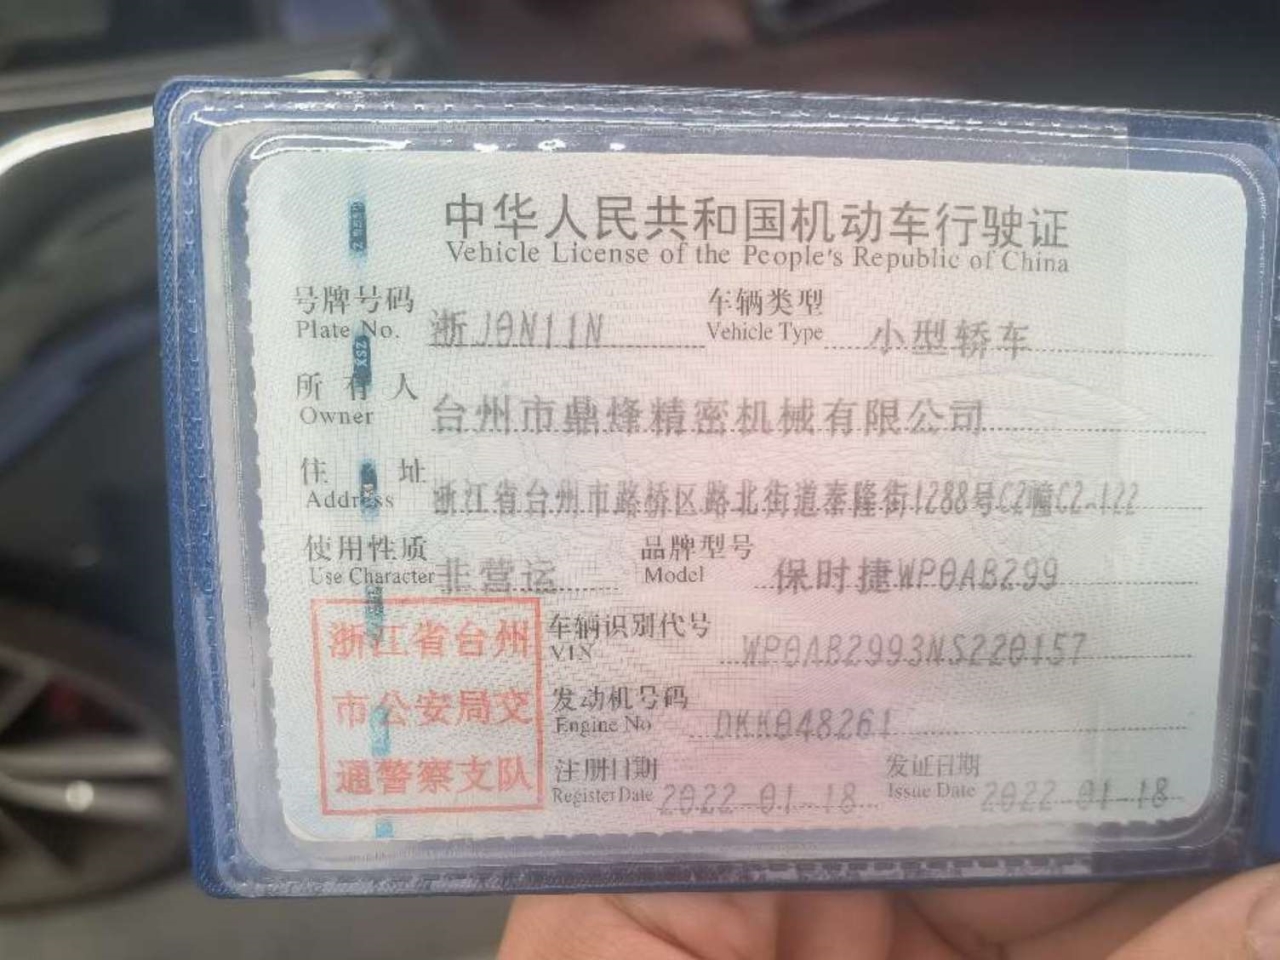 中华人民共和国机动车行驶证
Vehicle License of the People's Republic of China
号牌号码 浙J0N11N 车辆类型 小型轿车
Plate No. Vehicle Type
所有人 台州市鼎烽精密机械有限公司
Owner
住址 浙江省台州市路桥区路北街道泰隆街1288号C2幢C2-122
Address
使用性质 非营运 品牌型号 保时捷WP0AB299
Use Character Model
车辆识别代号 WP0AB2993NS220157
VIN
发动机号码 DKK048261
Engine No
注册日期 2022-01-18 发证日期 2022-01-18
Register Date Issue Date
浙江省台州
市公安局交
通警察支队